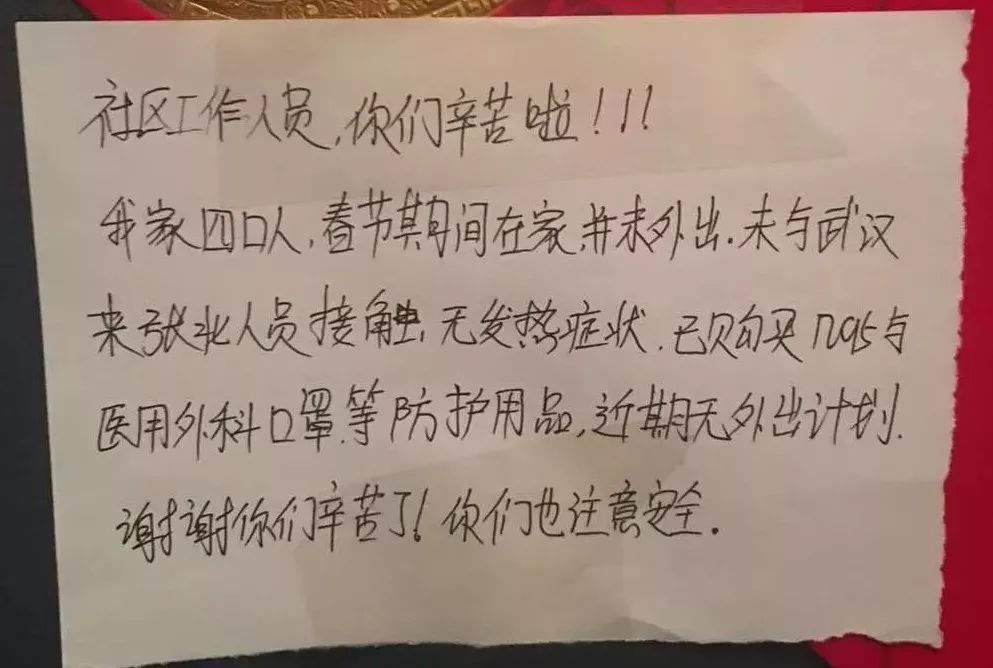 社区工作人员,你们辛苦啦!!!
我家四口人,春节期间在家并未外出.未与武汉
来张北人员接触,无发热症状.已购买n95与
医用外科口罩等防护用品,近期无外出计划.
谢谢你们辛苦了!你们也注意安全.